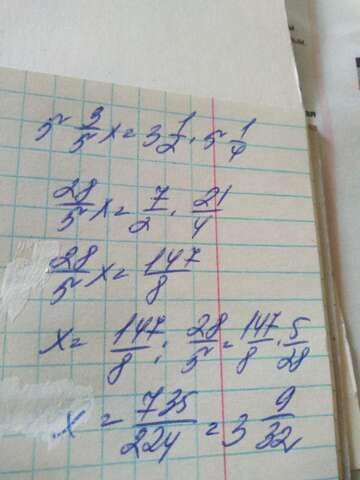 5 3/5 x = 3 1/2 · 5 1/4
28/5 x = 7/2 · 21/4
28/5 x = 147/8
x = 147/8 : 28/5 = 147/8 · 5/28
x = 735/224 = 3 9/32